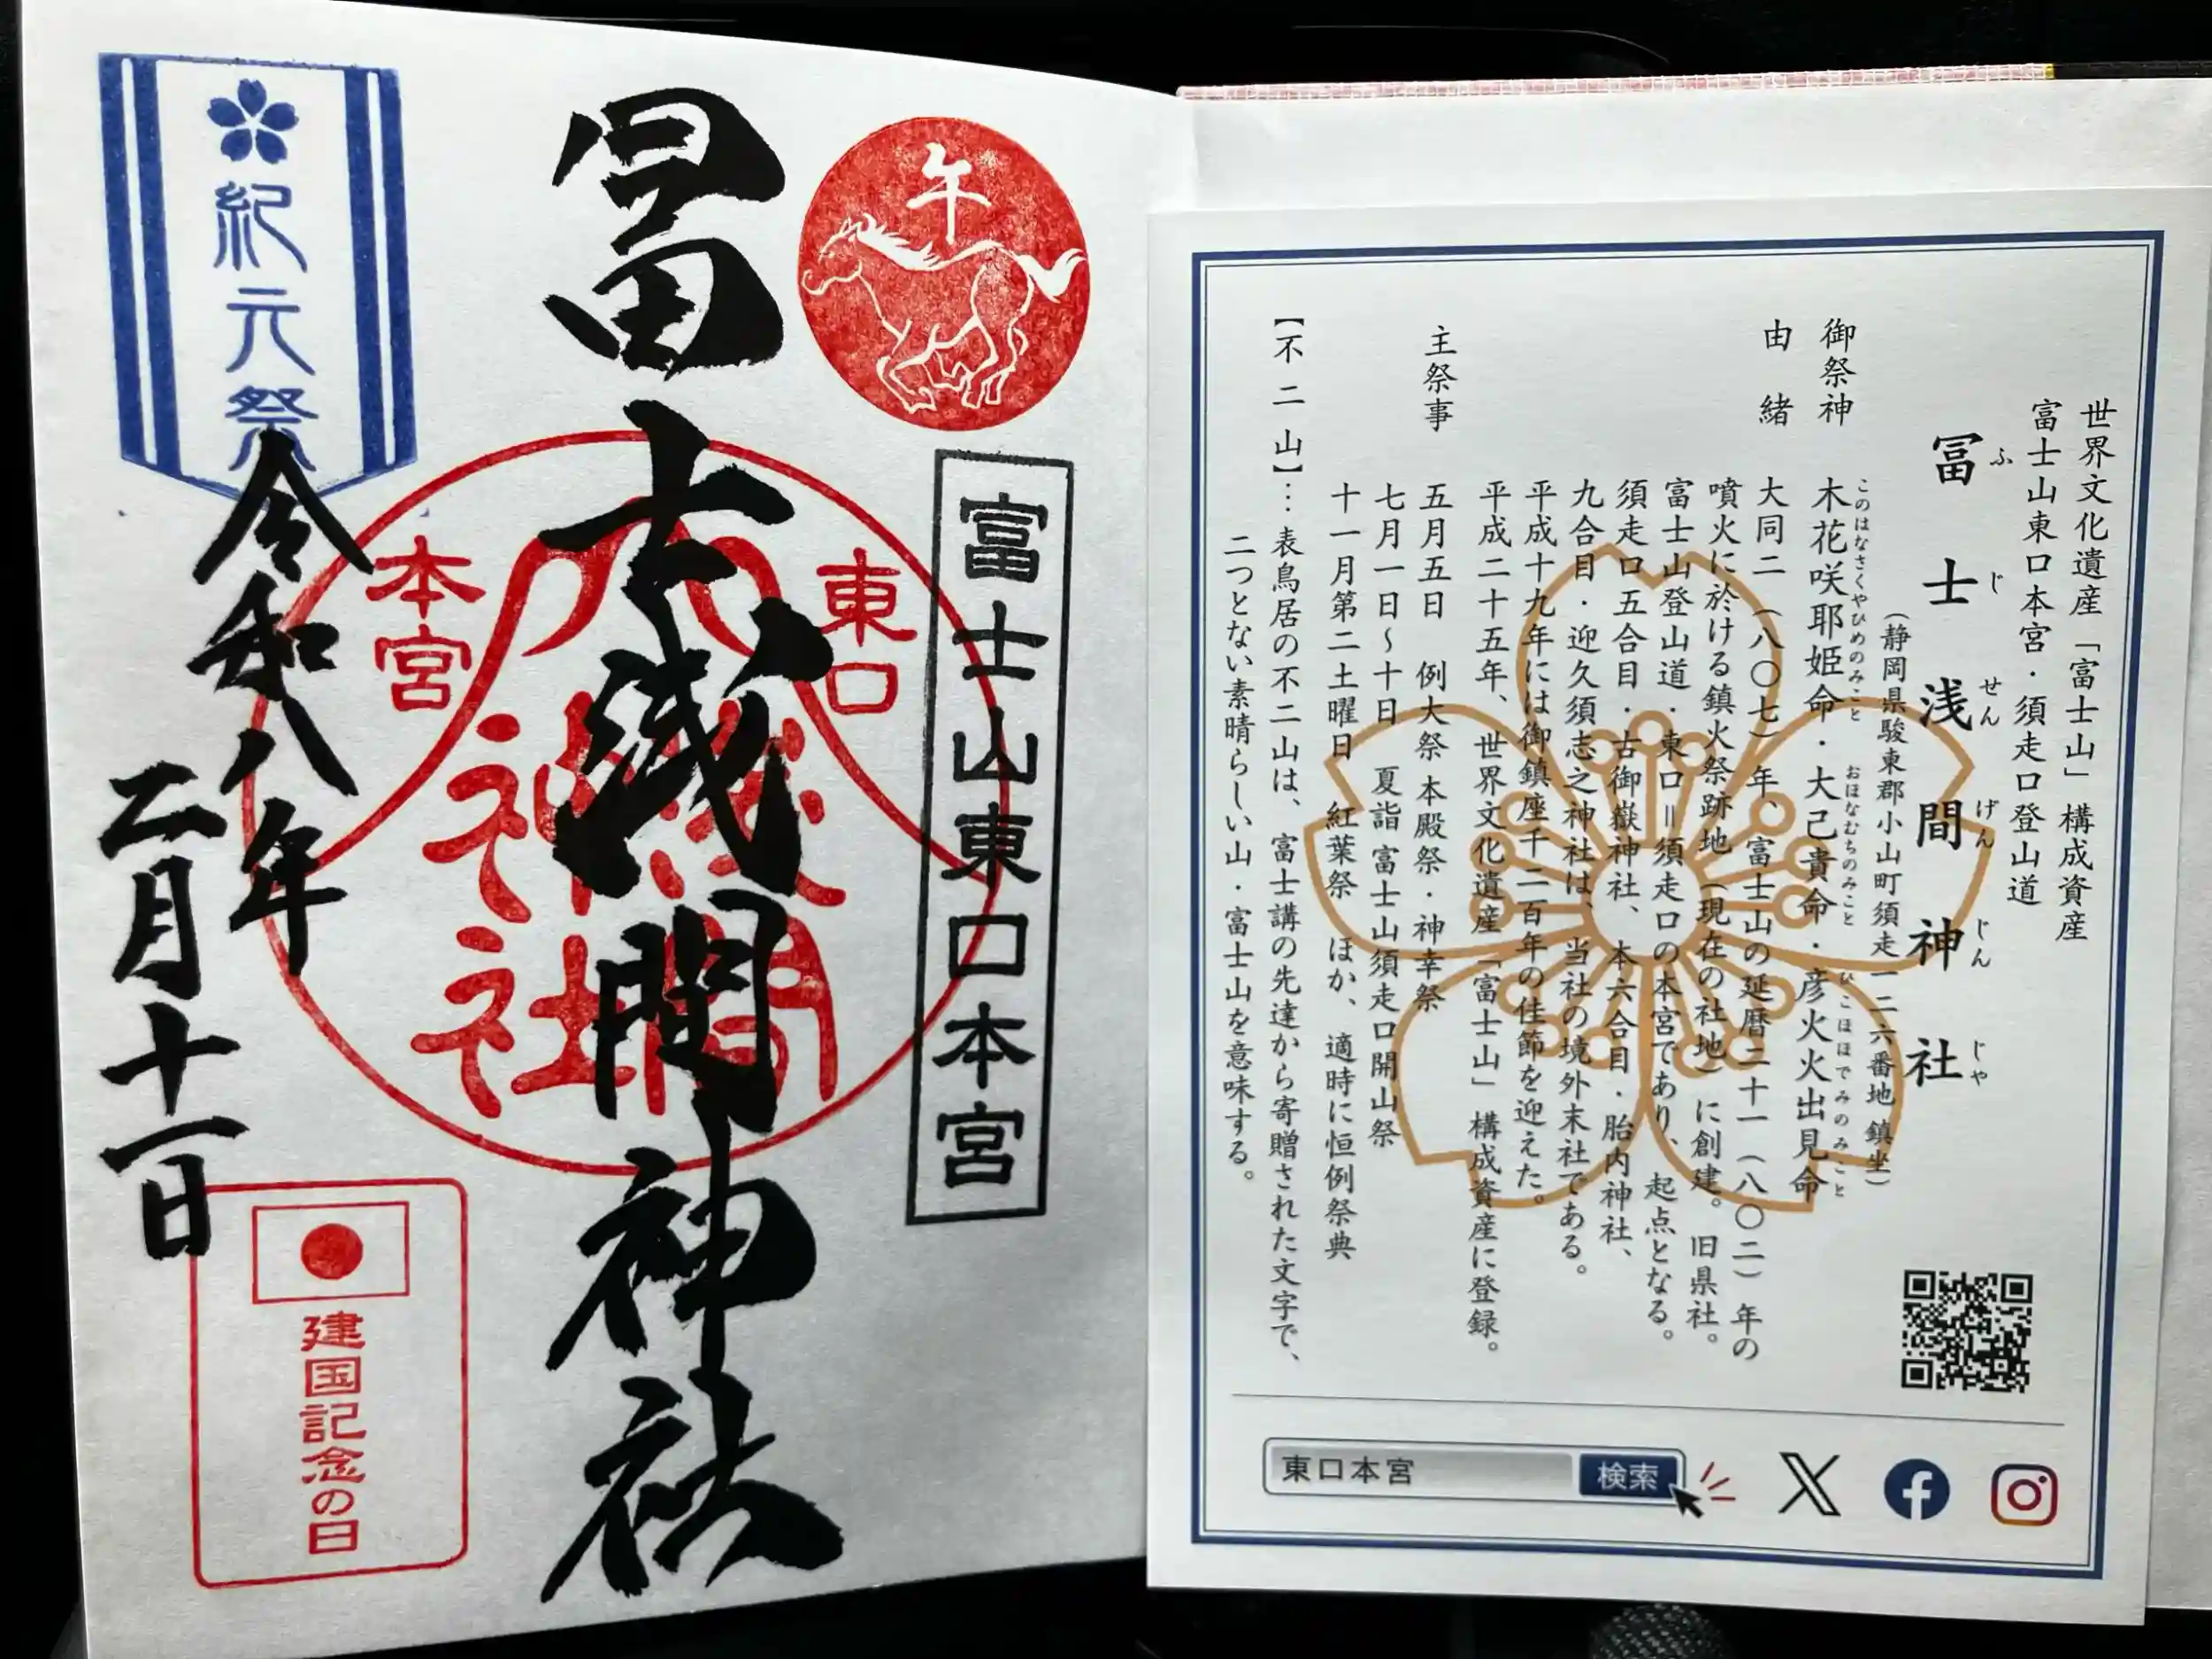 世界文化遺産「富士山」構成資産
富士山東口本宮・須走口登山道
冨士浅間神社
ふじせんげんじんじゃ
(静岡県駿東郡小山町須走一二六番地 鎮坐)
御祭神 木花咲耶姫命・大己貴命・彦火火出見命
このはなさくやひめのみこと おほなむちのみこと ひこほほでみのみこと
由緒 大同二(八〇七)年、富士山の延暦二十一(八〇二)年の
噴火に於ける鎮火祭跡地(現在の社地)に創建。旧県社。
富士山登山道・東口=須走口の本宮であり、起点となる。
須走口五合目・古御嶽神社、本六合目・胎内神社、
九合目・迎久須志之神社は、当社の境外末社である。
平成十九年には御鎮座千二百年の佳節を迎えた。
平成二十五年、世界文化遺産「富士山」構成資産に登録。
主祭事 五月五日 例大祭 本殿祭・神幸祭
七月一日〜十日 夏詣 富士山須走口開山祭
十一月第二土曜日 紅葉祭 ほか、適時に恒例祭典
【不二山】… 表鳥居の不二山は、富士講の先達から寄贈された文字で、
二つとない素晴らしい山・富士山を意味する。
東口本宮
検索
午
富士山東口本宮
冨士浅間神社
東口
本宮
浅間
神社
紀元祭
令和八年
二月十一日
建国記念の日